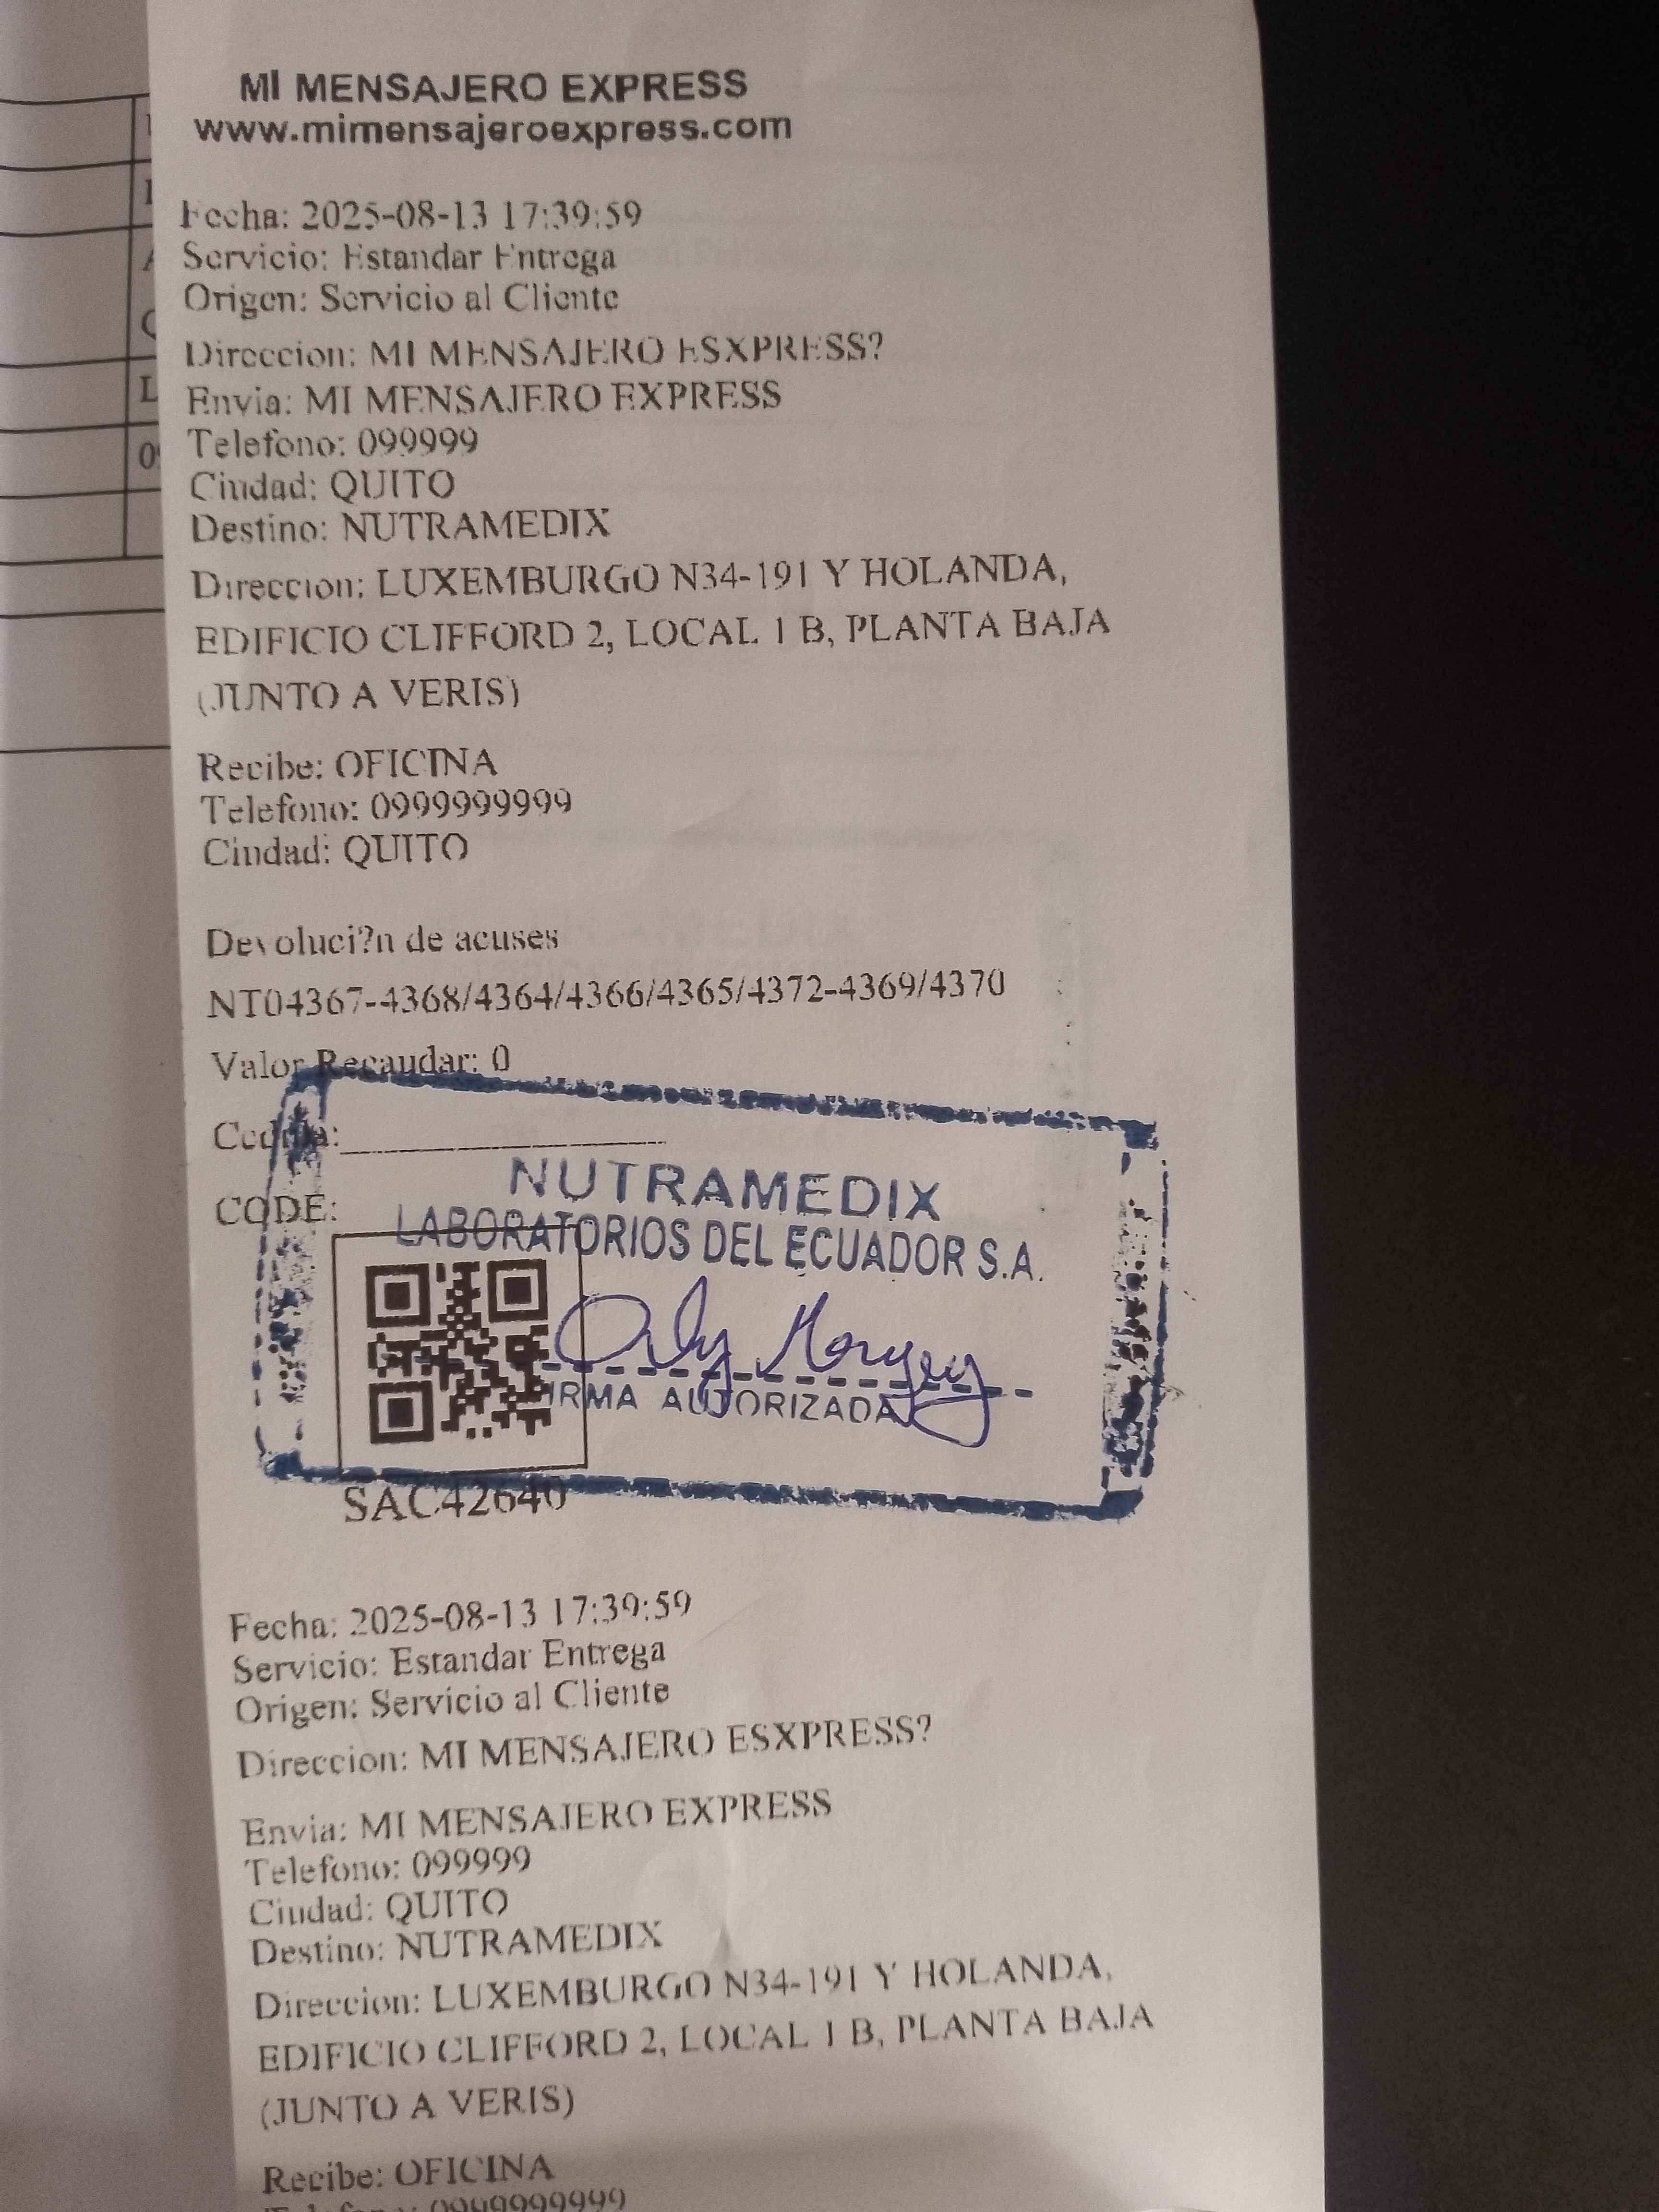 MI MENSAJERO EXPRESS
www.mimensajeroexpress.com
Fecha: 2025-08-13 17:39:59
Servicio: Estandar Entrega
Origen: Servicio al Cliente
Direccion: MI MENSAJERO ESXPRESS?
Envia: MI MENSAJERO EXPRESS
Telefono: 099999
Ciudad: QUITO
Destino: NUTRAMEDIX
Direccion: LUXEMBURGO N34-191 Y HOLANDA,
EDIFICIO CLIFFORD 2, LOCAL 1 B, PLANTA BAJA
(JUNTO A VERIS)
Recibe: OFICINA
Telefono: 0999999999
Ciudad: QUITO
Devoluci?n de acuses
NT04367-4368/4364/4366/4365/4372-4369/4370
Valor Recaudar: 0
Cedula:
CODE:
NUTRAMEDIX
LABORATORIOS DEL ECUADOR S.A.
FIRMA AUTORIZADA
SAC42640
Fecha: 2025-08-13 17:39:59
Servicio: Estandar Entrega
Origen: Servicio al Cliente
Direccion: MI MENSAJERO ESXPRESS?
Envia: MI MENSAJERO EXPRESS
Telefono: 099999
Ciudad: QUITO
Destino: NUTRAMEDIX
Direccion: LUXEMBURGO N34-191 Y HOLANDA,
EDIFICIO CLIFFORD 2, LOCAL 1 B, PLANTA BAJA
(JUNTO A VERIS)
Recibe: OFICINA
Telefono: 0999999999